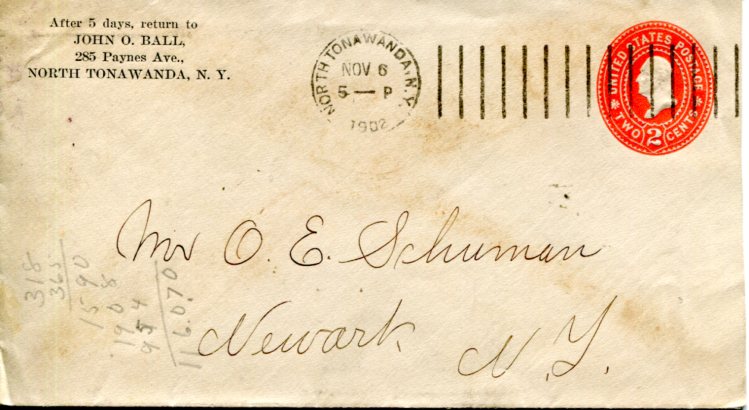 After 5 days, return to
JOHN O. BALL,
285 Paynes Ave.,
NORTH TONAWANDA, N. Y.
NORTH TONAWANDA, N.Y.
NOV 6
5 — P
1902
UNITED STATES POSTAGE
TWO 2 CENTS
Mr O. E. Schuman
Newark
N. Y.
318
365
1590
1908
954
116.070